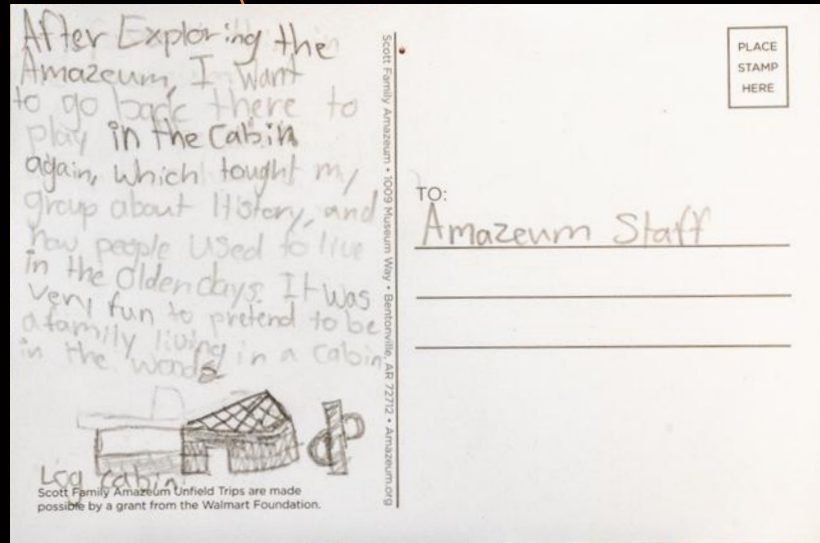 After Exploring the
Amazeum, I Want
to go back there to
play in the Cabin
again, which tought my
group about History, and
how people Used to live
in the Olden days. It was
very fun to pretend to be
a family living in a Cabin
in the woods
Log cabin
Scott Family Amazeum Unfield Trips are made
possible by a grant from the Walmart Foundation.
Scott Family Amazeum • 1009 Museum Way • Bentonville, AR 72712 • Amazeum.org
PLACE
STAMP
HERE
TO:
Amazeum Staff